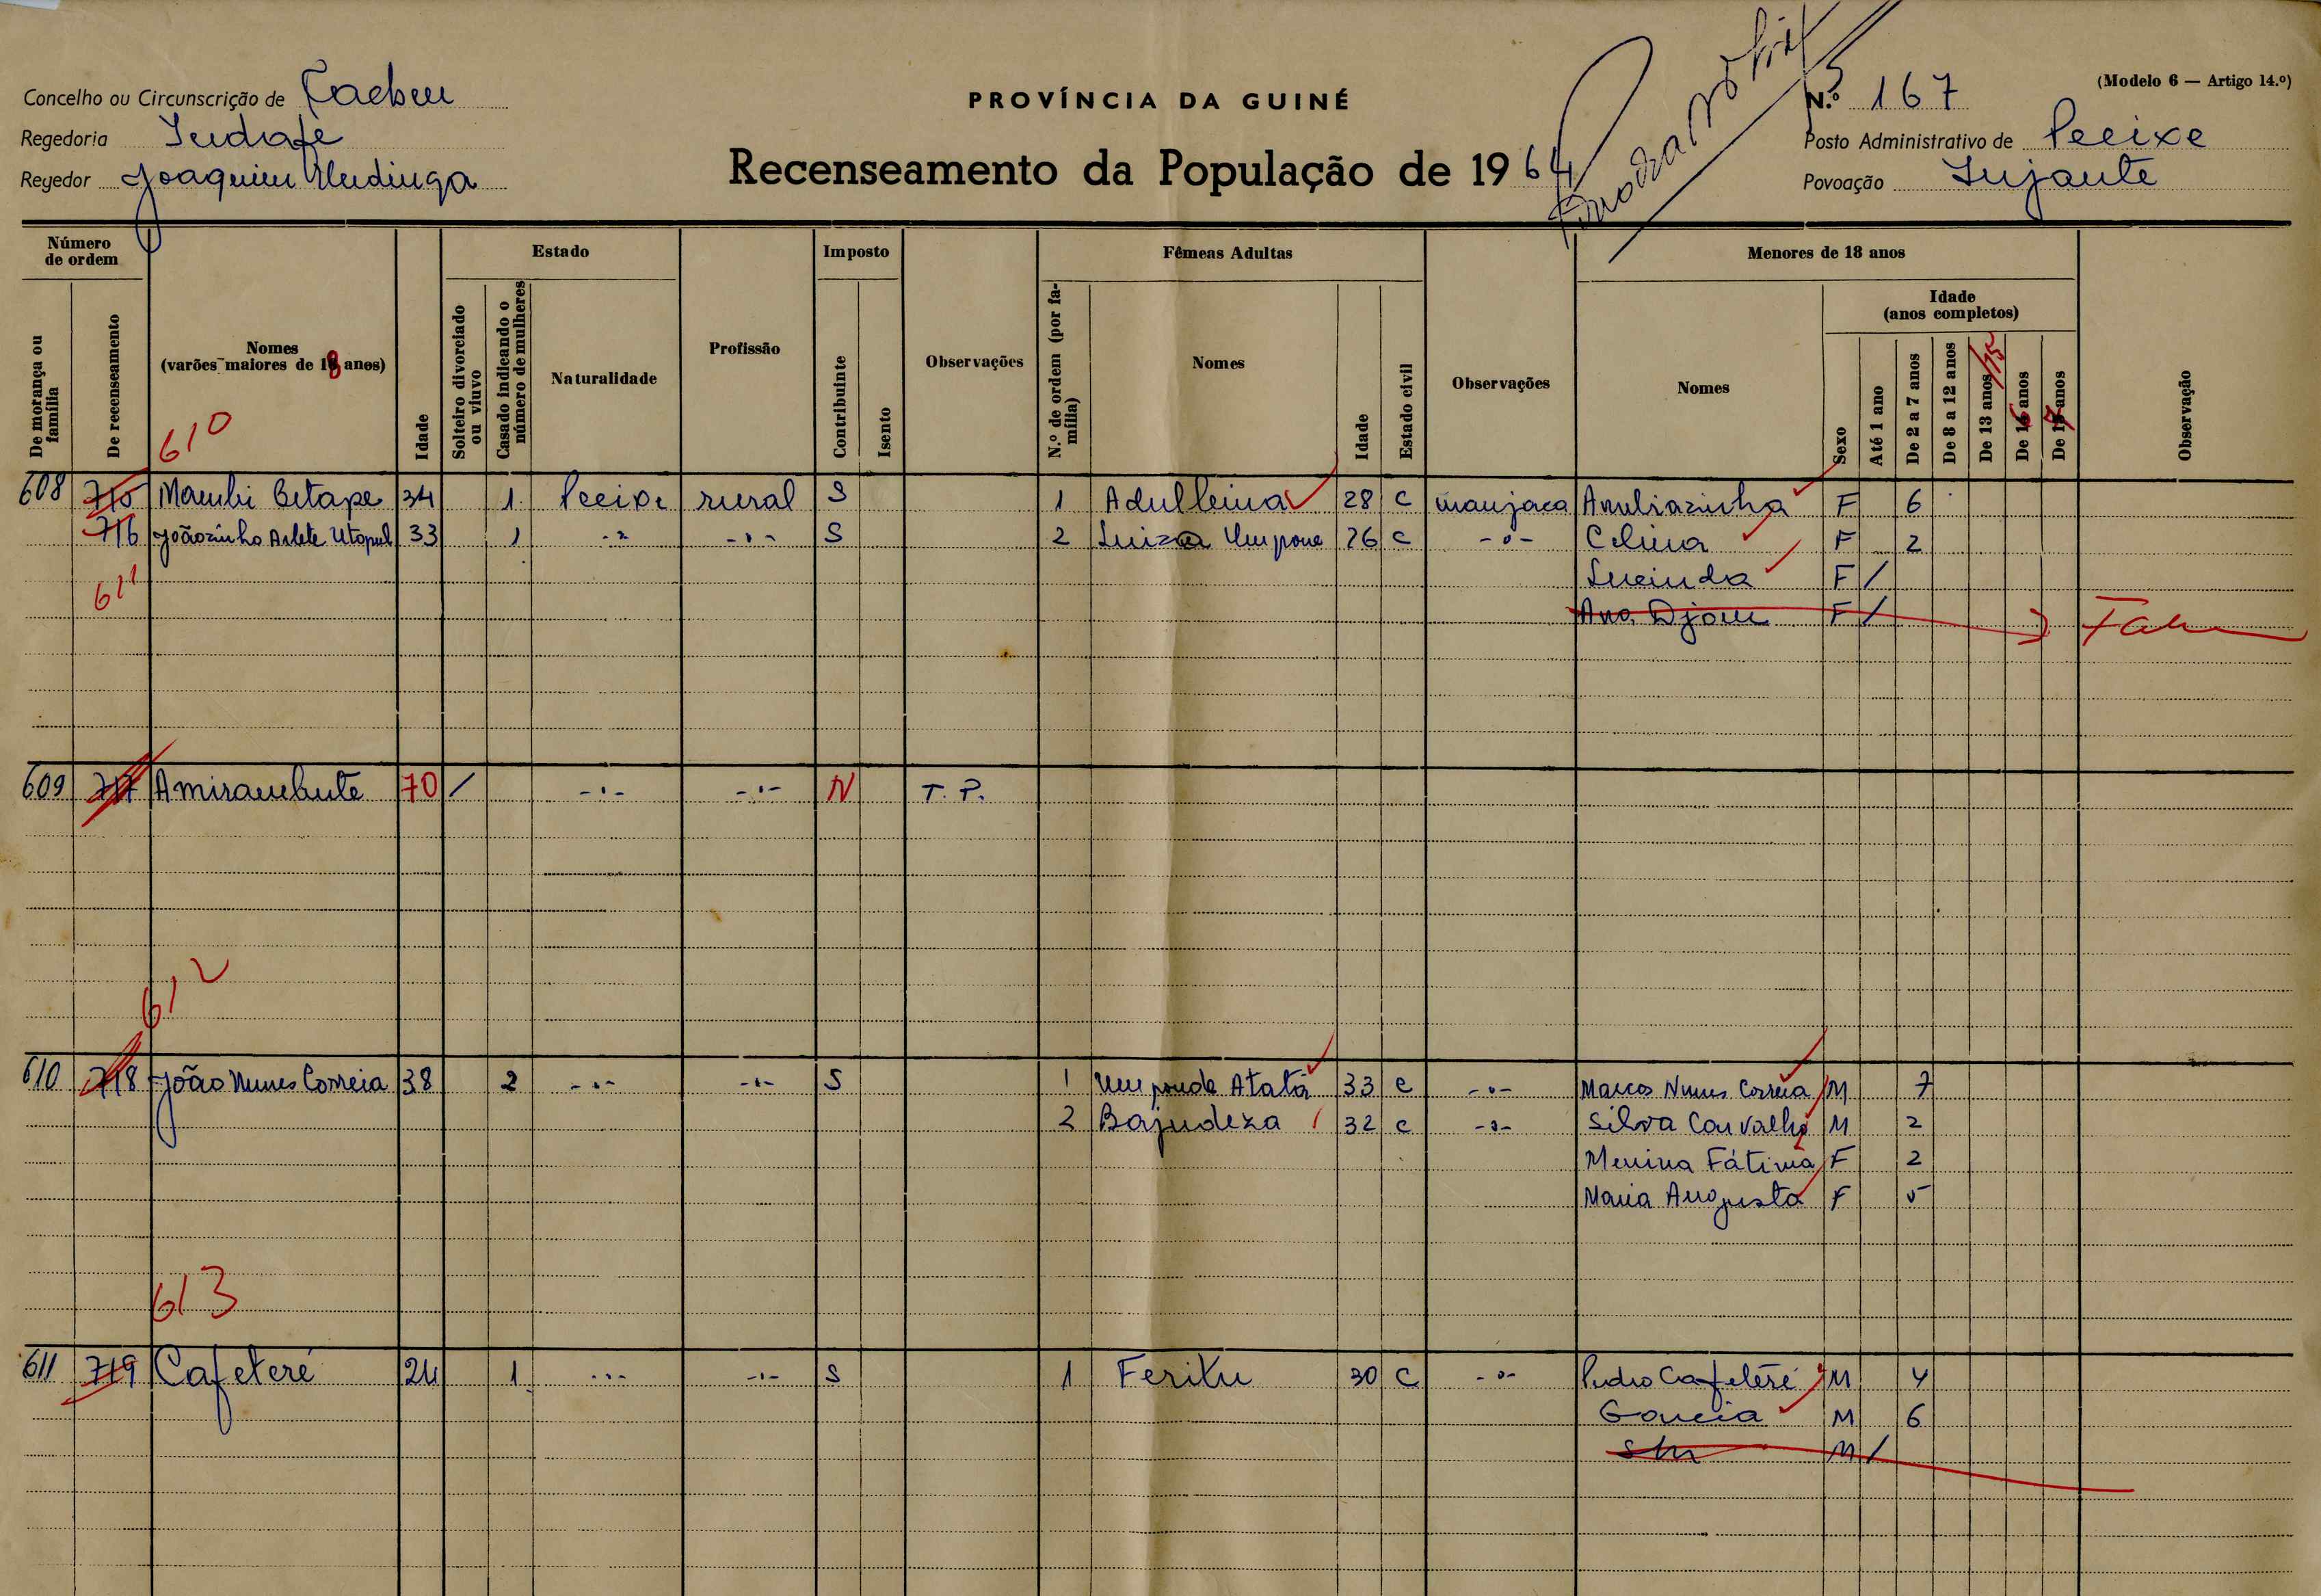 (Modelo 6 — Artigo 14.º)
Concelho ou Circunscrição de Cacheu
PROVÍNCIA DA GUINÉ
N.º 167
Regedoria
Posto Administrativo de Pecixe
Regedor Joaquim
Recenseamento da População de 1964
Povoação
Número de ordem
Estado
Imposto
Fêmeas Adultas
Menores de 18 anos
De morança ou família
De recenseamento
Nomes (varões maiores de 18 anos)
Idade
Solteiro divorciado ou viuvo
Casado indicando o número de mulheres
Naturalidade
Profissão
Contribuinte
Isento
Observações
N.º de ordem (por família)
Nomes
Idade
Estado civil
Observações
Nomes
Sexo
Idade (anos completos)
Até 1 ano
De 2 a 7 anos
De 8 a 12 anos
De 13 anos /15
De 16 anos
De 17 anos
Observação
610
608 715 34 1 Pecixe rural S 1 28 c manjaca F 6
716 33 1 -"- -"- S 2 Luiza 26 c -"- Celina F 2
611 Lucinda F /
Ana Djom F /
609 717 70 / -"- -"- N T. P.
612
610 718 João Nunes Correia 38 2 -"- -"- S 1 Atatá 33 c -"- Marcos Nunes Correia M 7
2 Bajudeza 32 c -"- Silva Carvalho M 2
Menina Fátima F 2
Maria Augusta F 5
613
611 719 Cafeteré 24 1 -"- -"- S 1 Feriku 30 c -"- Pedro Cafeteré M 4
Garcia M 6
S/n M /